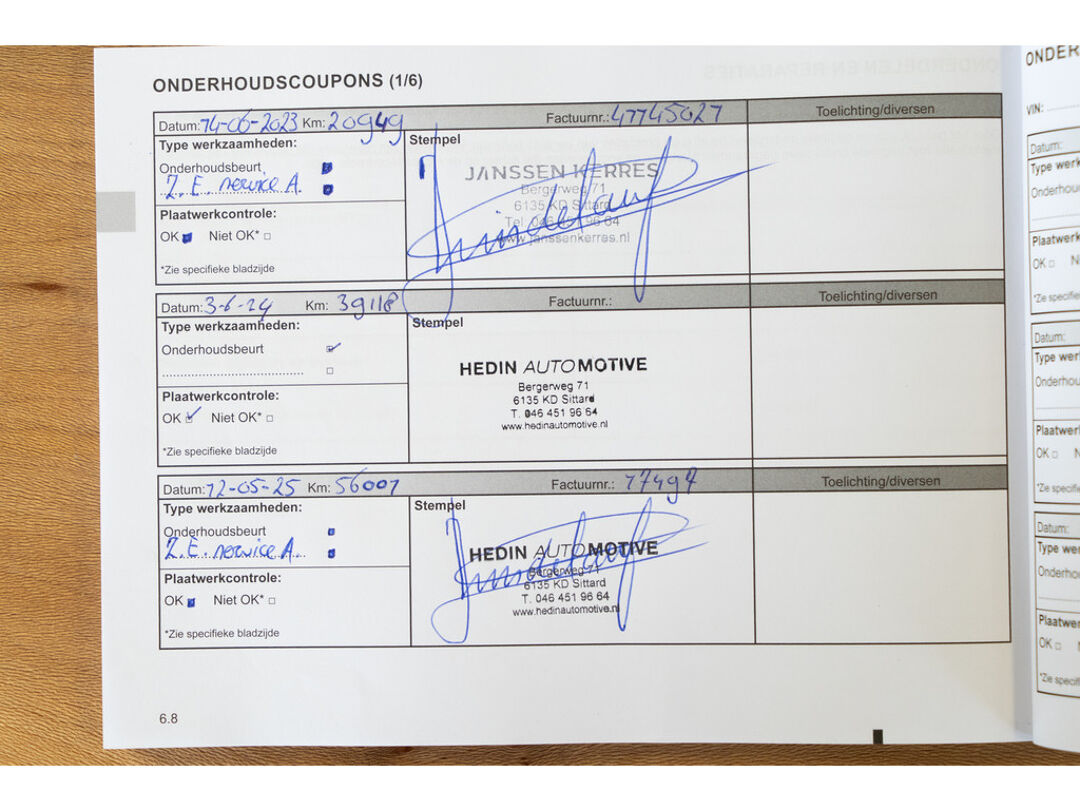 ONDERHOUDSCOUPONS (1/6)
Datum: 14-06-2023 Km: 20949 Factuurnr.: 47745027 Toelichting/diversen
Type werkzaamheden: Stempel
Onderhoudsbeurt
Z.E. service A.
Plaatwerkcontrole:
OK Niet OK*
*Zie specifieke bladzijde
JANSSEN KERRES
Bergerweg 71
6135 KD Sittard
Tel. 046 451 96 64
www.janssenkerres.nl
Datum: 3-6-24 Km: 39118 Factuurnr.: Toelichting/diversen
Type werkzaamheden: Stempel
Onderhoudsbeurt
Plaatwerkcontrole:
OK Niet OK*
*Zie specifieke bladzijde
HEDIN AUTOMOTIVE
Bergerweg 71
6135 KD Sittard
T. 046 451 96 64
www.hedinautomotive.nl
Datum: 12-05-25 Km: 56001 Factuurnr.: Toelichting/diversen
Type werkzaamheden: Stempel
Onderhoudsbeurt
Z.E. service A.
Plaatwerkcontrole:
OK Niet OK*
*Zie specifieke bladzijde
HEDIN AUTOMOTIVE
Bergerweg 71
6135 KD Sittard
T. 046 451 96 64
www.hedinautomotive.nl
6.8
ONDER
VIN:
Datum:
Type werk
Onderhoud
Plaatwerk
OK N
*Zie specifie
Datum:
Type wer
Onderhou
Plaatwerl
OK N
*Zie specif
Datum:
Type we
Onderhoo
Plaatwe
OK
*Zie specif